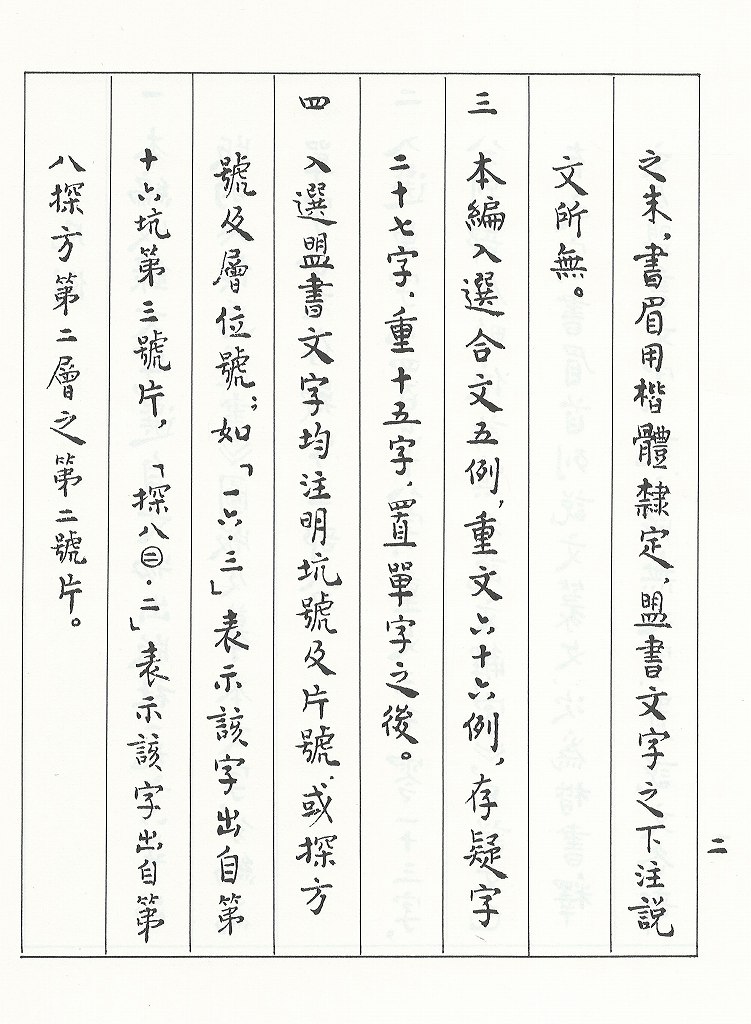 之末，書眉用楷體隸定，盟書文字之下注説
文所無。
三　本編入選合文五例，重文六十六例，存疑字
二十七字，重十五字，置單字之後。
四　入選盟書文字均注明坑號及片號，或探方
號及層位號；如「一六·三」表示該字出自第
十六坑第三號片，「探八㊁·二」表示該字出自第
八探方第二層之第二號片。
二